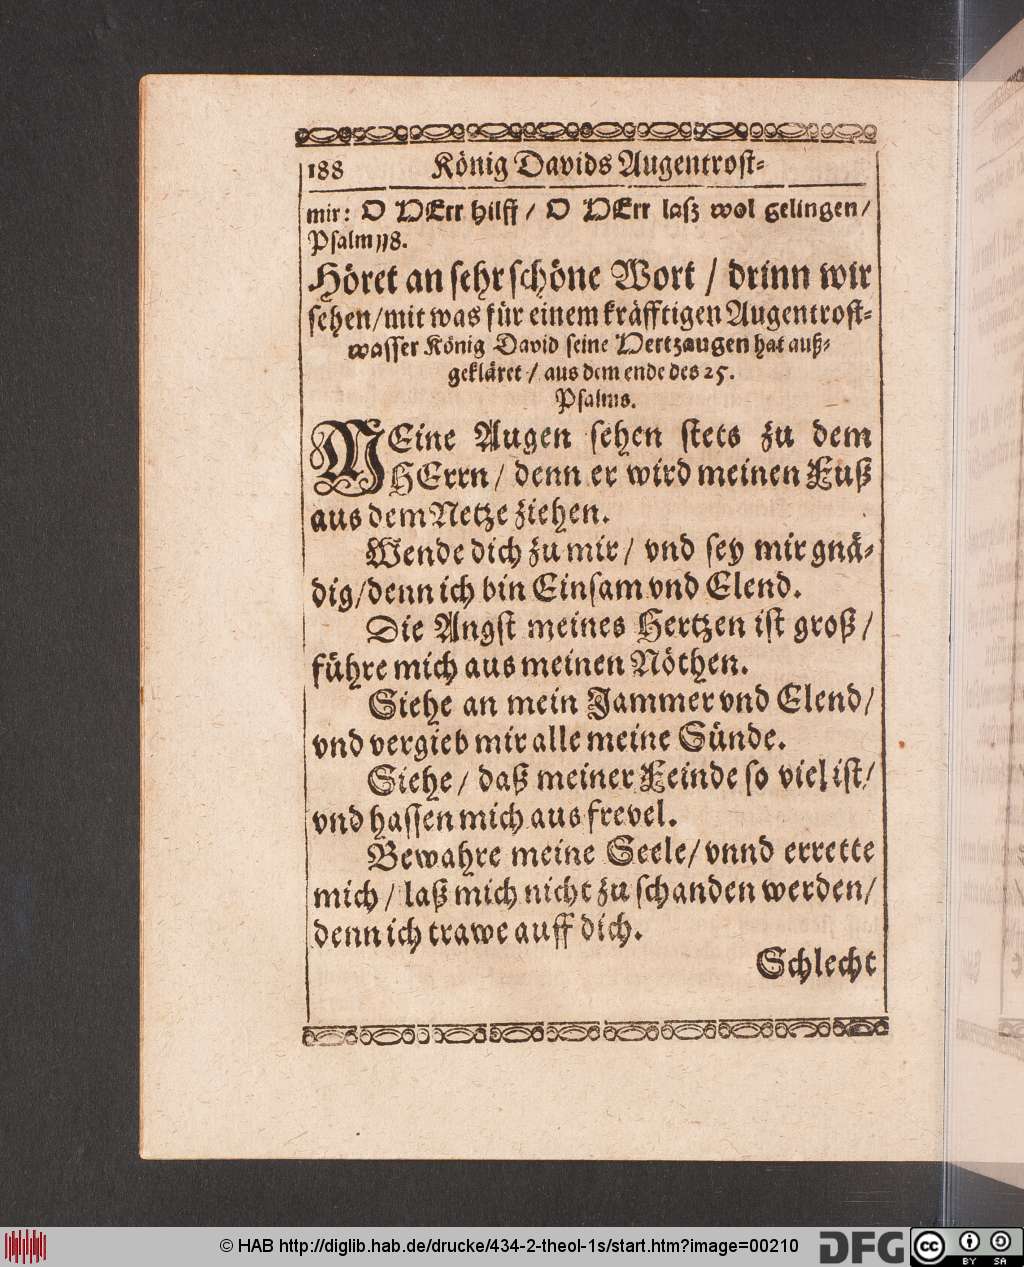 188 König Davids Augentrost-
mir: O HErr hilff / O HErr lasz wol gelingen /
Psalm 118.
Höret an sehr schöne Wort / drinn wir
sehen / mit was für einem kräfftigen Augentrost-
wasser König David seine Hertzaugen hat auß-
gekläret / aus dem ende des 25.
Psalms.
MEine Augen sehen stets zu dem
HErrn / denn er wird meinen Fuß
aus dem Netze ziehen.
Wende dich zu mir / vnd sey mir gnä-
dig / denn ich bin Einsam vnd Elend.
Die Angst meines Hertzen ist groß /
führe mich aus meinen Nöthen.
Siehe an mein Jammer vnd Elend /
vnd vergieb mir alle meine Sünde.
Siehe / daß meiner Feinde so viel ist /
vnd hassen mich aus frevel.
Bewahre meine Seele / vnnd errette
mich / laß mich nicht zu schanden werden /
denn ich trawe auff dich.
Schlecht
© HAB http://diglib.hab.de/drucke/434-2-theol-1s/start.htm?image=00210
DFG
cc BY SA